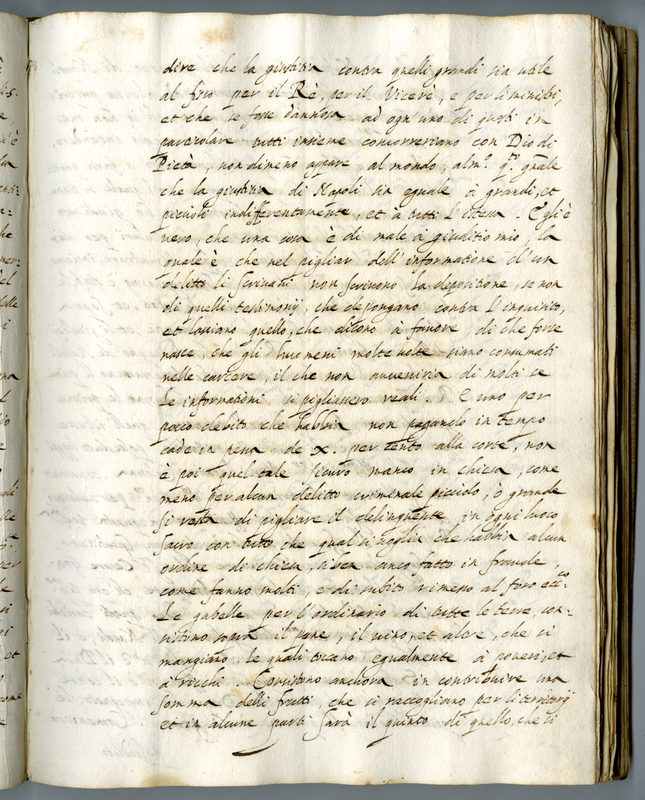 dire che la giustitia contra quelli grandi sia utile
al fisco per il Rè, per il Vicerè, e per li ministri,
et che le forse dannosa ad ogn'uno di questi in
particolare tutti insieme concorreriano con Dio di
Pietà, non dimeno appare al mondo, alm.º
che la giustitia di Napoli sia eguale a grandi, et
piccioli indifferentemente, et a tutti l'istessa. Egli è
vero, che una cosa è di male à giuditio mio, la
quale è che nel pigliar dell'informatione d'un
delitto li scrivani non scrivono la depositione, se non
di quelli testimonij, che depongano contra l'inquisito,
et lasciano quello, che dicono à favore di che forse
nasce, che gli huomeni molte volte siano consumati
nelle carcere, il che non avveniria di molti se
le informationi si pigliassero reali. E uno per
pocco debito che habbia non pagando in tempo
cade in pena de x. per cento alla corte, non
è poi quel tale sicuro manco in chiesa, come
meno per alcun delitto criminale picciolo, ò grande
si resta di pigliare il delinquente in ogni luoco
sacro con tutto che qual si voglia che habbia alcun
ordine di chiesa, se ben anco fatto in fraude,
come fanno molti, e di subito rimesso al foro ecc.co
Le gabelle per l'ordinario di tutte le terre, con-
sistono sopra il pane, il vino, et altre, che si
mangiano, le quali toccano egualmente à poveri, et
à ricchi. Consistono anchora in contribuire una
somma delli frutti, che si raccogliano per li territorij
et in alcune parti sarà il quinto di quello, che si